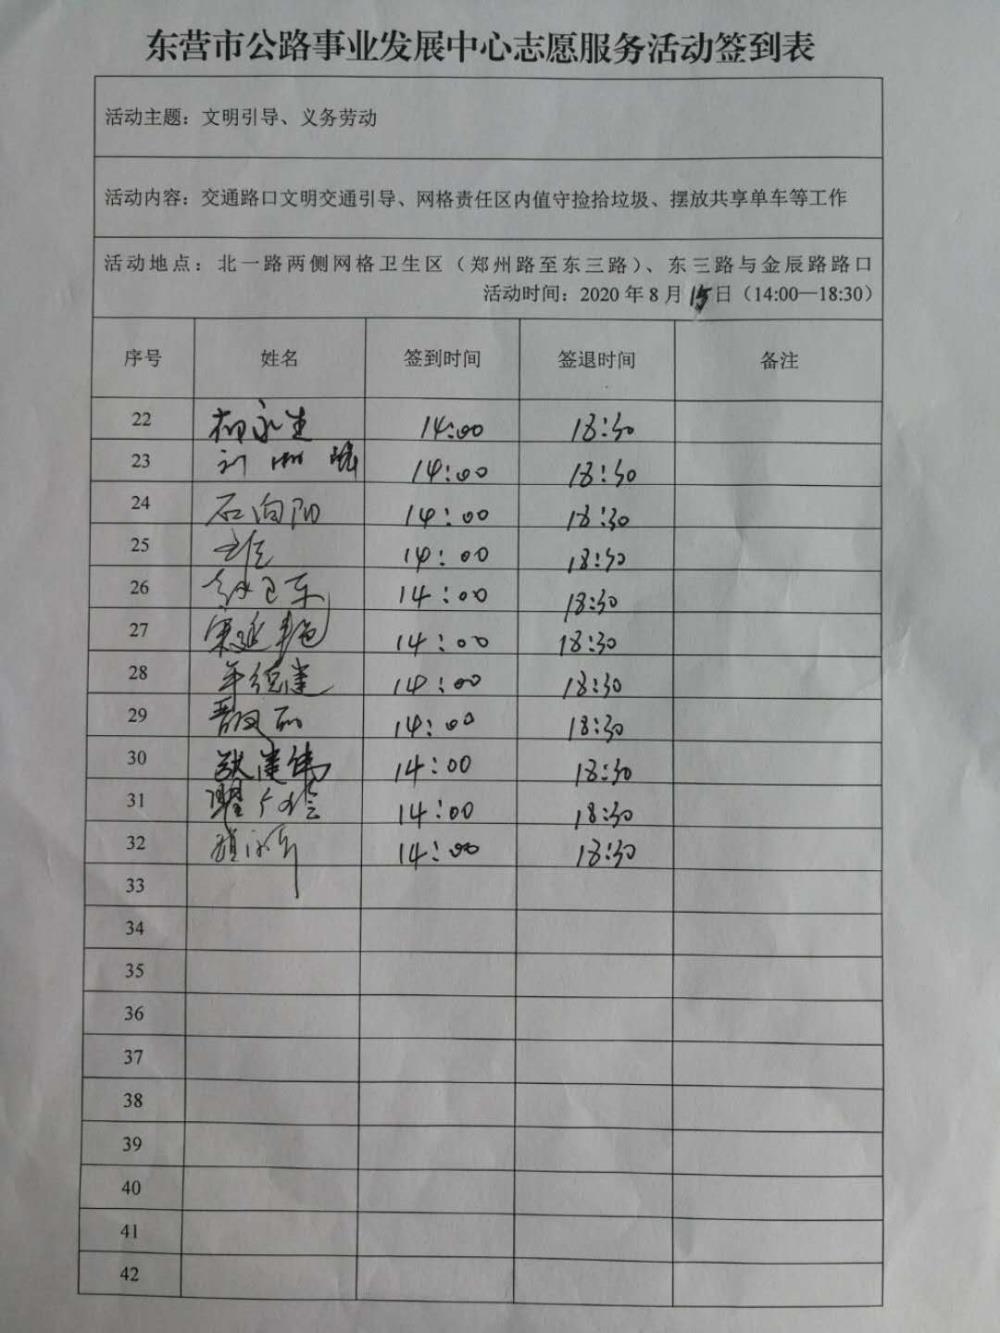 东营市公路事业发展中心志愿服务活动签到表
活动主题：文明引导、义务劳动
活动内容：交通路口文明交通引导、网格责任区内值守捡拾垃圾、摆放共享单车等工作
活动地点：北一路两侧网格卫生区（郑州路至东三路）、东三路与金辰路路口
活动时间：2020 年 8 月 15 日（14:00—18:30）
序号 姓名 签到时间 签退时间 备注
22 柳永生 14:00 18:30
23 14:00 18:30
24 石向阳 14:00 18:30
25 14:00 18:30
26 赵卫东 14:00 18:30
27 14:00 18:30
28 14:00 18:30
29 14:00 18:30
30 张建伟 14:00 18:30
31 14:00 18:30
32 14:00 18:30
33
34
35
36
37
38
39
40
41
42